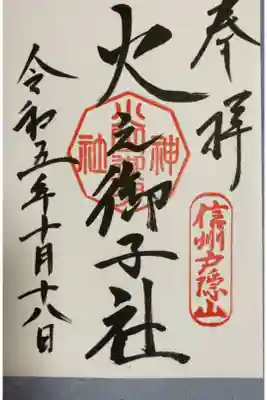 奉拝
信州戸隠山
火之御子社
令和五年十月十八日